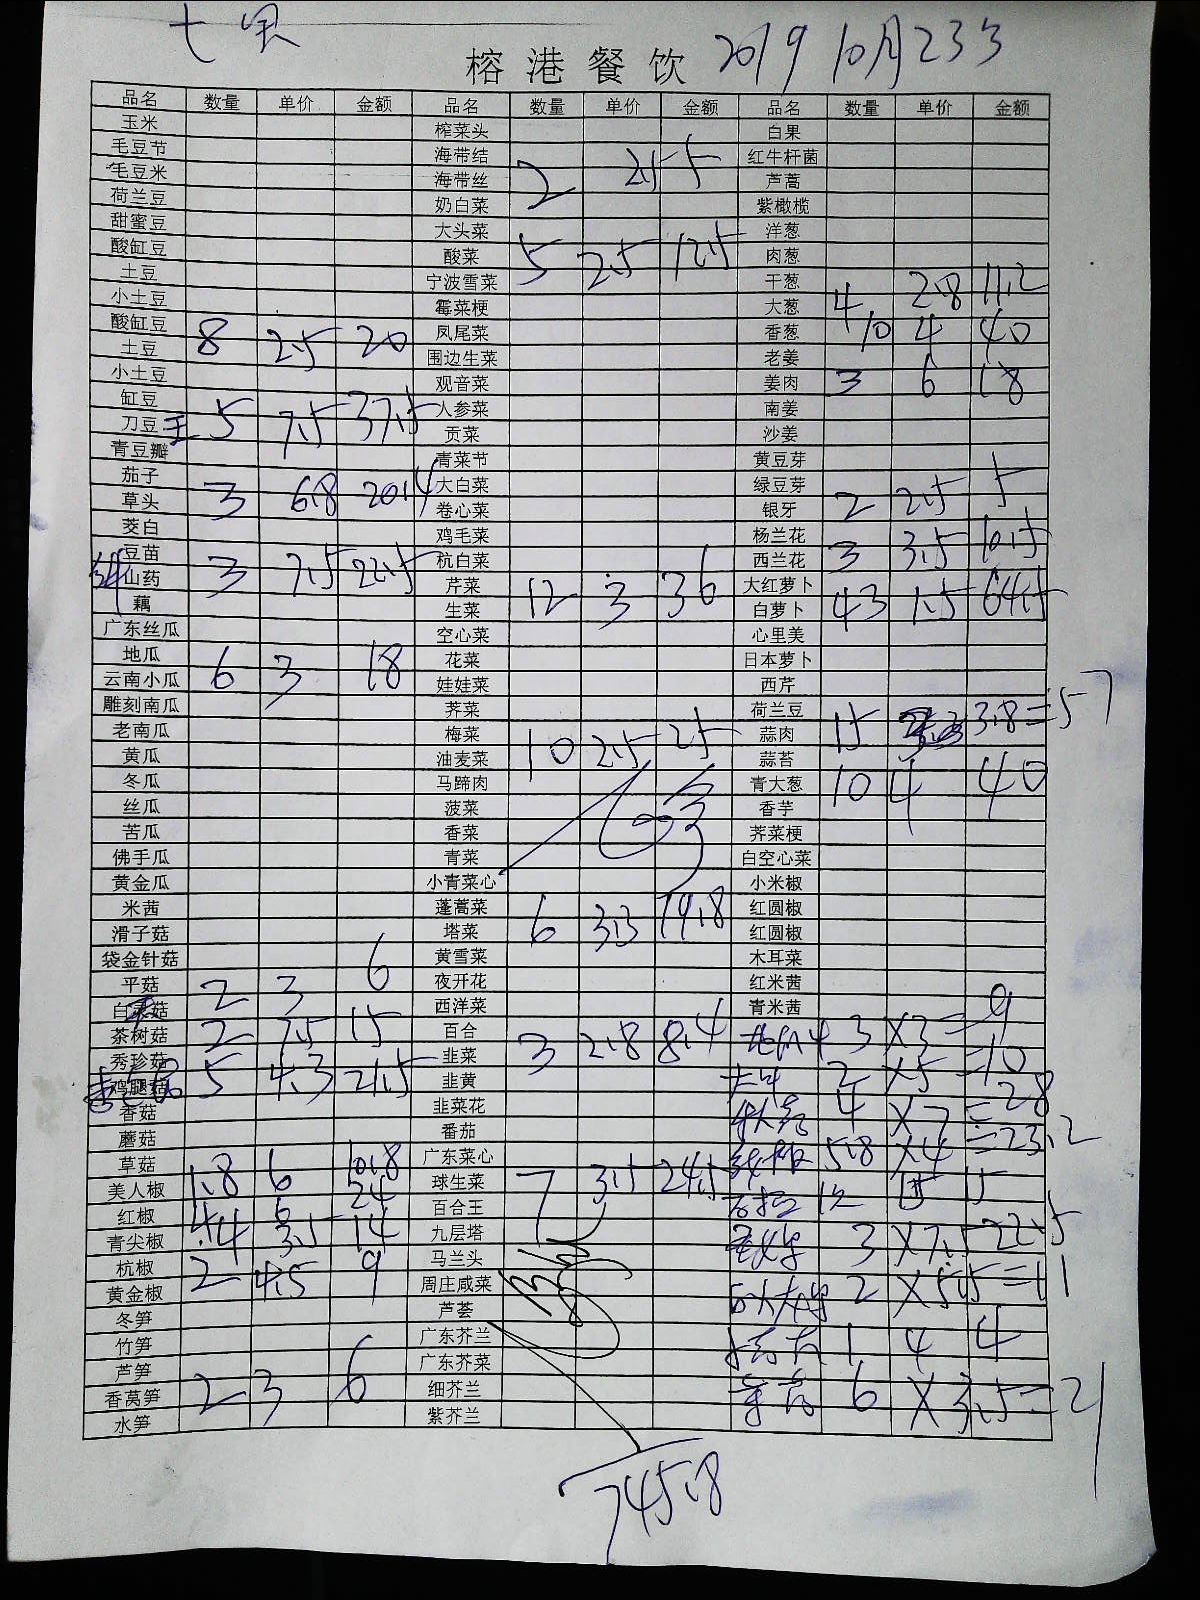 七果
榕港餐饮 2019 10月23号
品名 数量 单价 金额 品名 数量 单价 金额 品名 数量 单价 金额
玉米 榨菜头 白果
毛豆节 海带结 红牛杆菌
毛豆米 海带丝 2 2.5 5 芦蒿
荷兰豆 奶白菜 紫橄榄
甜蜜豆 大头菜 洋葱
酸缸豆 酸菜 5 2.5 12.5 肉葱
土豆 宁波雪菜 干葱
小土豆 霉菜梗 大葱 4 2.8 11.2
酸缸豆 8 2.5 20 凤尾菜 香葱 10 4 40
土豆 围边生菜 老姜
小土豆 观音菜 姜肉 3 6 18
缸豆 人参菜 南姜
刀豆 王 5 7.5 37.5 贡菜 沙姜
青豆瓣 青菜节 黄豆芽
茄子 大白菜 绿豆芽
草头 3 6.8 20.4 卷心菜 银牙 2 2.5 5
茭白 鸡毛菜 杨兰花
豆苗 杭白菜 西兰花 3 3.5 10.5
山药 3 7.5 22.5 芹菜 大红萝卜
藕 生菜 12 3 36 白萝卜 43 1.5 64.5
广东丝瓜 空心菜 心里美
地瓜 花菜 日本萝卜
云南小瓜 6 3 18 娃娃菜 西芹
雕刻南瓜 荠菜 荷兰豆
老南瓜 梅菜 蒜肉 15 3.8=57
黄瓜 油麦菜 10 2.5 25 蒜苔
冬瓜 马蹄肉 青大葱 10 4 40
丝瓜 菠菜 香芋
苦瓜 香菜 荠菜梗
佛手瓜 青菜 白空心菜
黄金瓜 小青菜心 小米椒
米茜 蓬蒿菜 红圆椒
滑子菇 塔菜 6 3.3 19.8 红圆椒
袋金针菇 黄雪菜 木耳菜
平菇 2 3 6 夜开花 红米茜
白灵菇 西洋菜 青米茜
茶树菇 2 7.5 15 百合 3 ×3=9
秀珍菇 韭菜 3 2.8 8.4 2 ×5=10
鸡腿菇 5 4.3 21.5 韭黄
香菇 韭菜花 4 ×7=28
蘑菇 番茄
草菇 广东菜心 5.8 ×4=23.2
美人椒 1.8 6 10.8 球生菜 7 3.5 24.5
红椒 4 6 24 百合王 15
青尖椒 4 3.5 14 九层塔 3 ×7.5 22.5
杭椒 2 4.5 9 马兰头
黄金椒 周庄咸菜 2 ×5.5=11
冬笋 芦荟
竹笋 广东芥兰 1 4 4
芦笋 广东芥菜
香莴笋 2 3 6 细芥兰 6 ×3.5=21
水笋 紫芥兰
745.8